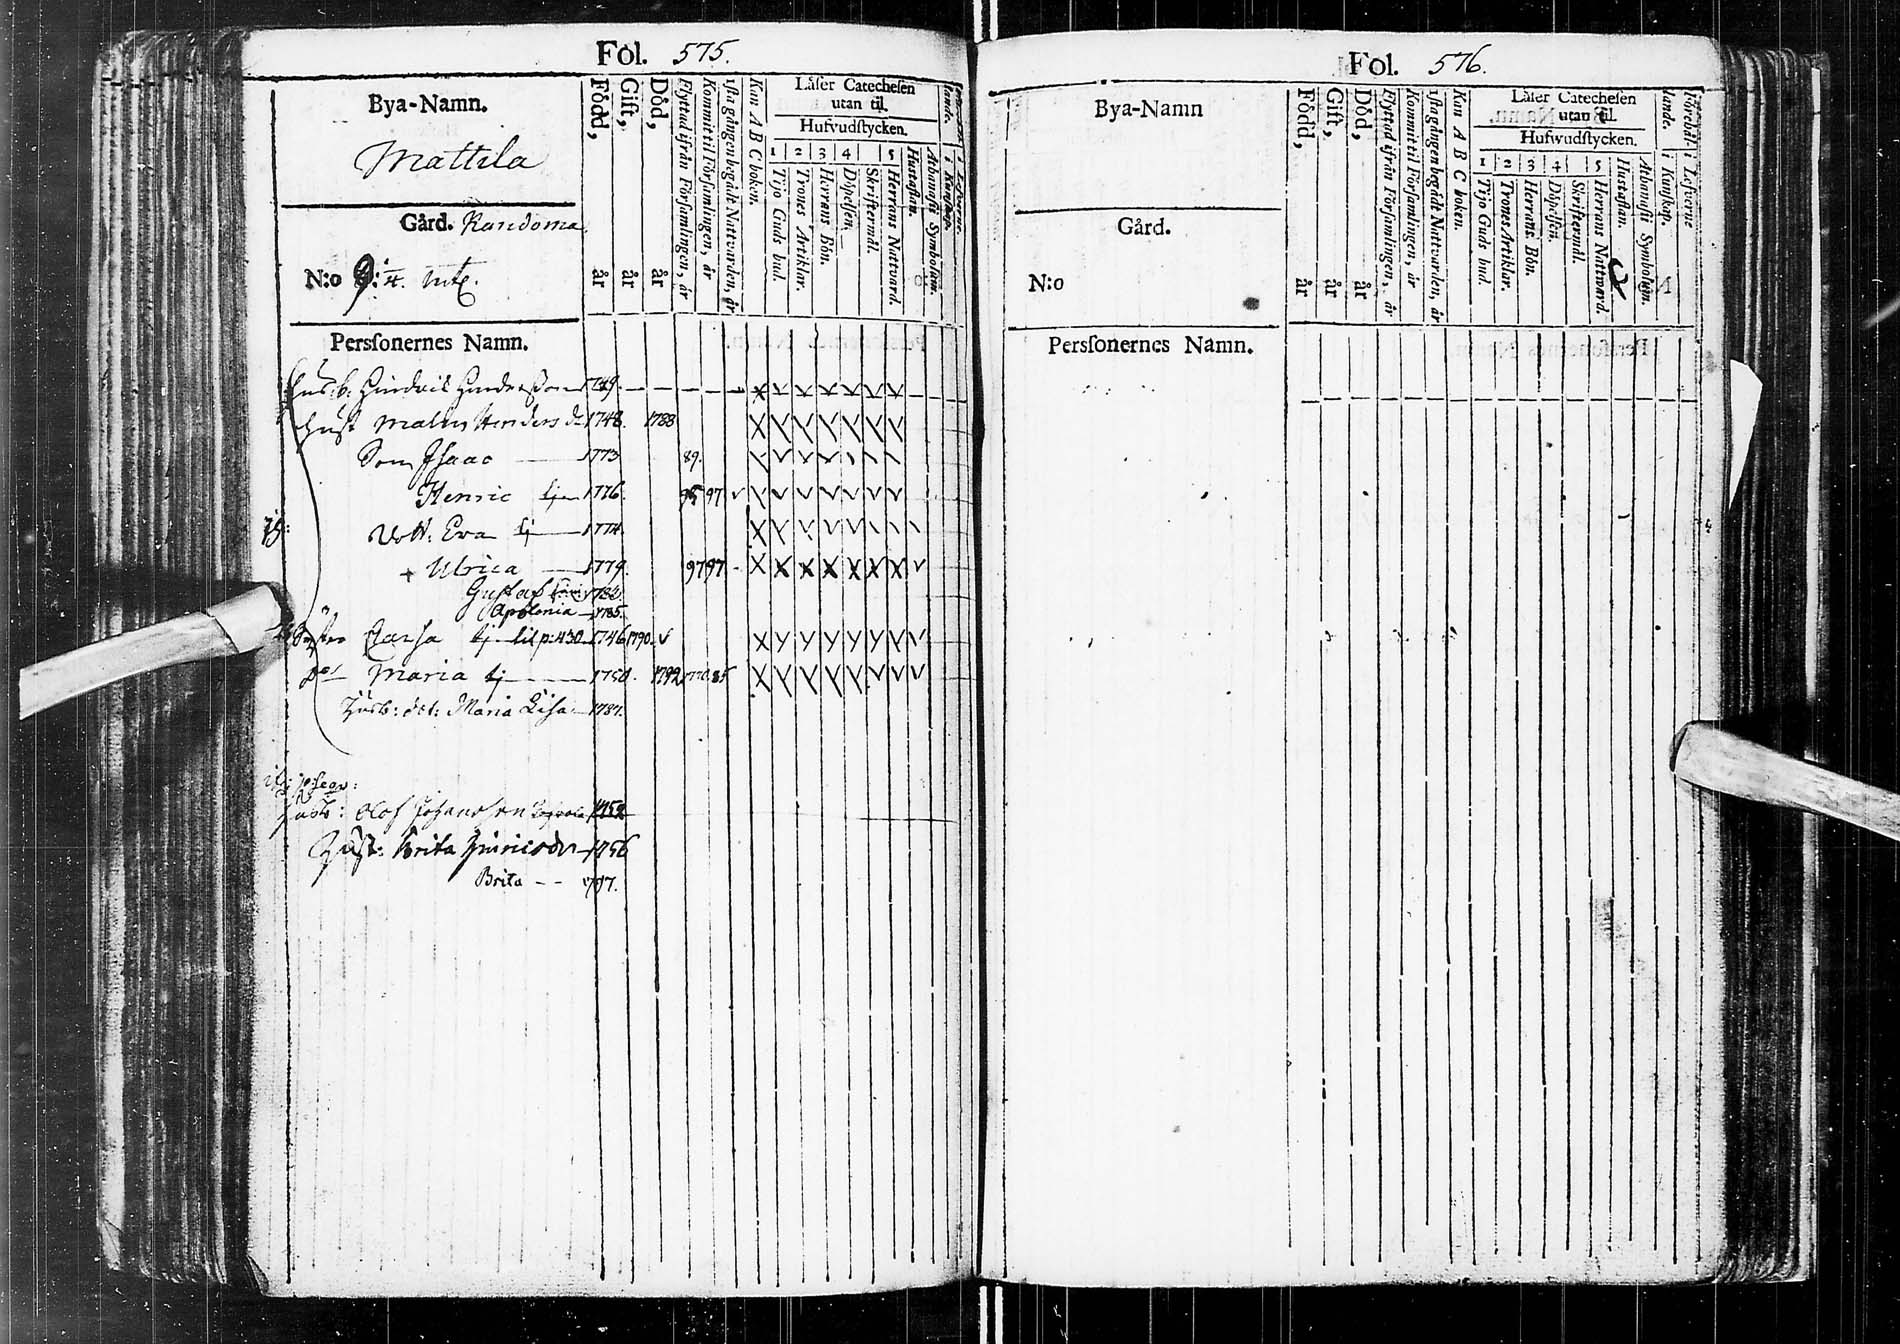 Fol. 575.
Bya-Namn.
Mattila
Gård. Randoma
N:o 9:
Född, år
Gift, år
Död, år
Flyttad ifrån Församlingen, år
Kommit til Församlingen, år
1sta gången begådt Nattvarden, år
Kan A B C boken.
Läser Catechesen
utan til.
Hufvudstycken.
1 2 3 4 5
Tijo Guds bud.
Trones Artiklar.
Herrans Bön.
Döpelsen.
Skriftermål.
Herrans Nattvard.
Hustaflan.
Athanasii Symbolum.
i Kunskap.
i Lefverne.
Personernes Namn.
Husb: Hindrik Hindersson 1749.
Hust Malin Hinders d 1748. 1788
Son Isaac 1773 89.
Henric tj 1776. 95 97
Dott: Eva tj 1774.
+ Ulrica 1779. 97 97
Gustaf
Apolonia 1785.
Syster Carsa tj til p. 430 1746 1790.
Do Maria tj 1750. 1792
Husb: dot: Maria Lisa 1787.
Husb: Olof Johansson 1752
Hust: Brita Hinricsdr 1756
Brita -- 1797.
Fol. 576.
Bya-Namn
Gård.
N:o
Född, år
Gift, år
Död, år
Flyttad ifrån Församlingen, år
Kommit til Församlingen, år
1sta gången begådt Nattvarden, år
Kan A B C boken.
Läser Catechesen
utan til.
Hufwudstycken.
1 2 3 4 5
Tijo Guds bud.
Trones Artiklar.
Herrans Bön.
Döpelsen.
Skriftermål.
Herrans Nattvard.
Hustaflan.
Athanasii Symbolum.
Förehållande.
i Kunskap.
i Lefverne
Personernes Namn.